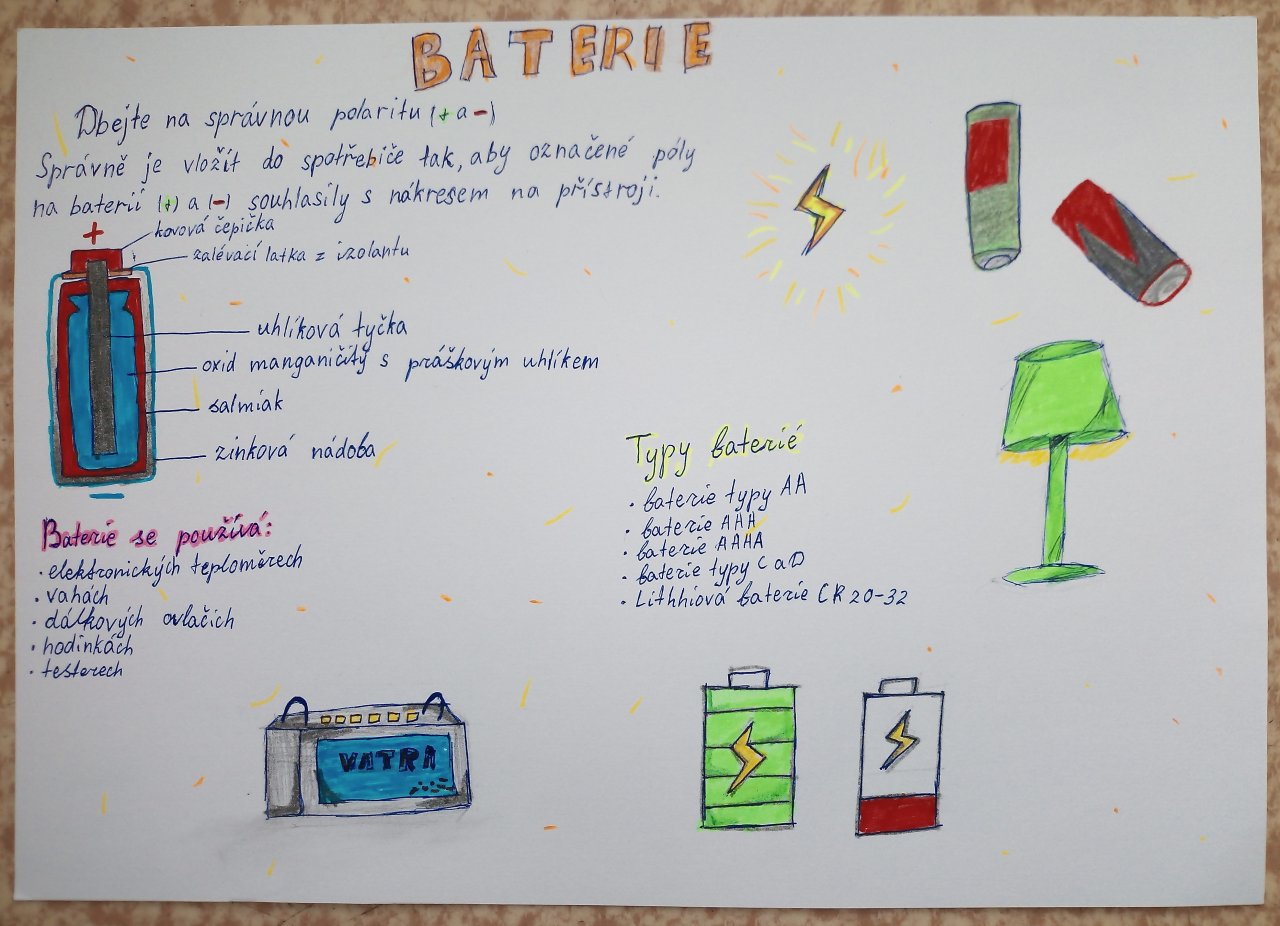 BATERIE
Dbejte na správnou polaritu (+ a -)
Správně je vložít do spotřebiče tak, aby označené póly
na baterii (+) a (-) souhlasily s nákresem na přístroji.
+
kovová čepička
zalévací latka z izolantu
uhlíková tyčka
oxid manganičitý s práškovým uhlíkem
salmiak
zinková nádoba
-
Baterie se používá:
• elektronických teploměrech
• vahách
• dálkových ovlačich
• hodinkách
• testerech
Typy baterié
• baterie typy AA
• baterie AAA
• baterie AAAA
• baterie typy C a D
• Lithhiová baterie CR 20-32
VATRA